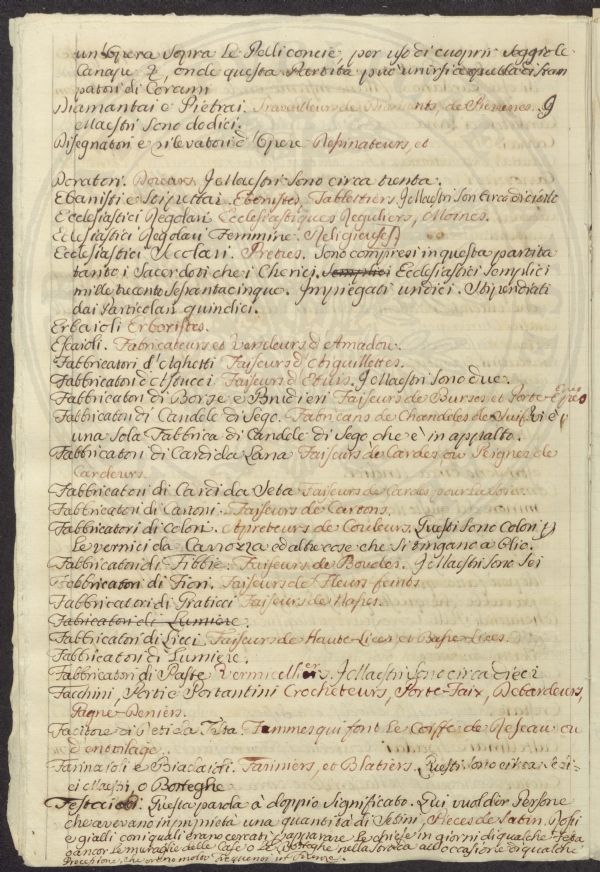 un'Opera sopra le Pelli concie, per uso di cuoprir Seggiole
Canape &, onde questa Partita può unirsi a quella di Stam
patori di Corami
Diamantai e Pietrai. Travailleurs de Diamants, de Pierreries. J
e Maestri sono dodici.
Disegnatori e rilevatori d'Opere Dessinateurs, et

Doratori. Doreurs. I Maestri sono circa trenta.
Ebanisti e Stipettai Ebenistes, Tablettiers. I Maestri son circa diciotto
Ecclesiastici Regolari Ecclesiastiques Reguliers, Moines.
Eclesiastici Regolari Femmine. Religieuses
Ecclesiastici Secolari. Pretres. Sono compresi in questa partita
tanto i Sacerdoti che i Cherici. Semplici Ecclesiastici Semplici
mille ducento sessantacinque. Impiegati undici. Stipendiati
dai Particolari quindici.
Erbaioli Erboristes.
Escaioli. Fabricateurs et Vendeurs d'Amadou.
Fabbricatori d'Aghetti Faiseurs d'Aiguillettes.
Fabbricatori d'Astucci Faiseurs d'Etuis. I Maestri sono due.
Fabbricatori di Borse e Budrieri Faiseurs de Burses et Porte-Epées
Fabbricatori di Candele di Sego. Fabricans de Chandeles de Suif. Vi è
una sola Fabbrica di Candele di Sego che è in appalto.
Fabbricatori di Cardi da Lana Faiseurs de Cardes ou Peignes de
Cardeurs.
Fabbricatori di Cardi da Seta Faiseurs de Cardes pour la Soie.
Fabbricatori di Cartoni. Faiseurs de Cartons.
Fabbricatori di Colori. Apreteurs de Couleurs. Questi sono Colori p
le vernici da Carrozza ed altre cose che si tingano a Olio.
Fabbricatori di Fibbie. Faiseurs de Boucles. I Maestri sono sei
Fabbricatori di Fiori. Faiseurs de Fleurs feints.
Fabbricatori di Graticci Faiseurs de Nasses.
Fabricatori di Lumiere.
Fabbricatori di Licci Faiseurs de Haute-Lices et Basse-Lices.
Fabbricatori di Lumiere.
Fabbricatori di Paste Vermicelliers. I Maestri sono circa dieci
Facchini, Porti e Portantini Crocheteurs, Porte-Faix, Debardeurs,
Gagne-Deniers.
Facitore di Reti da Testa. Femmes qui font le Coiffe de Reseau ou
d'entoilage.
Farinaioli e Biadaioli. Fariniers, et Blatiers. Questi sono circa
ei Maestri, o Botteghe
Festaioli. Questa parola à doppio significato. Qui vuol dire Persone
che averano in pimieta una quantità di Setini, Pieces de Satin, Rossi
e gialli con i quali erano cercati p apparare le chiese in giorni di qualche Festa
o ancor le muraglie delle Case o le Botteghe nella strada all'occasione di qualche
Processione, che erano molto frequenti in Firenze.